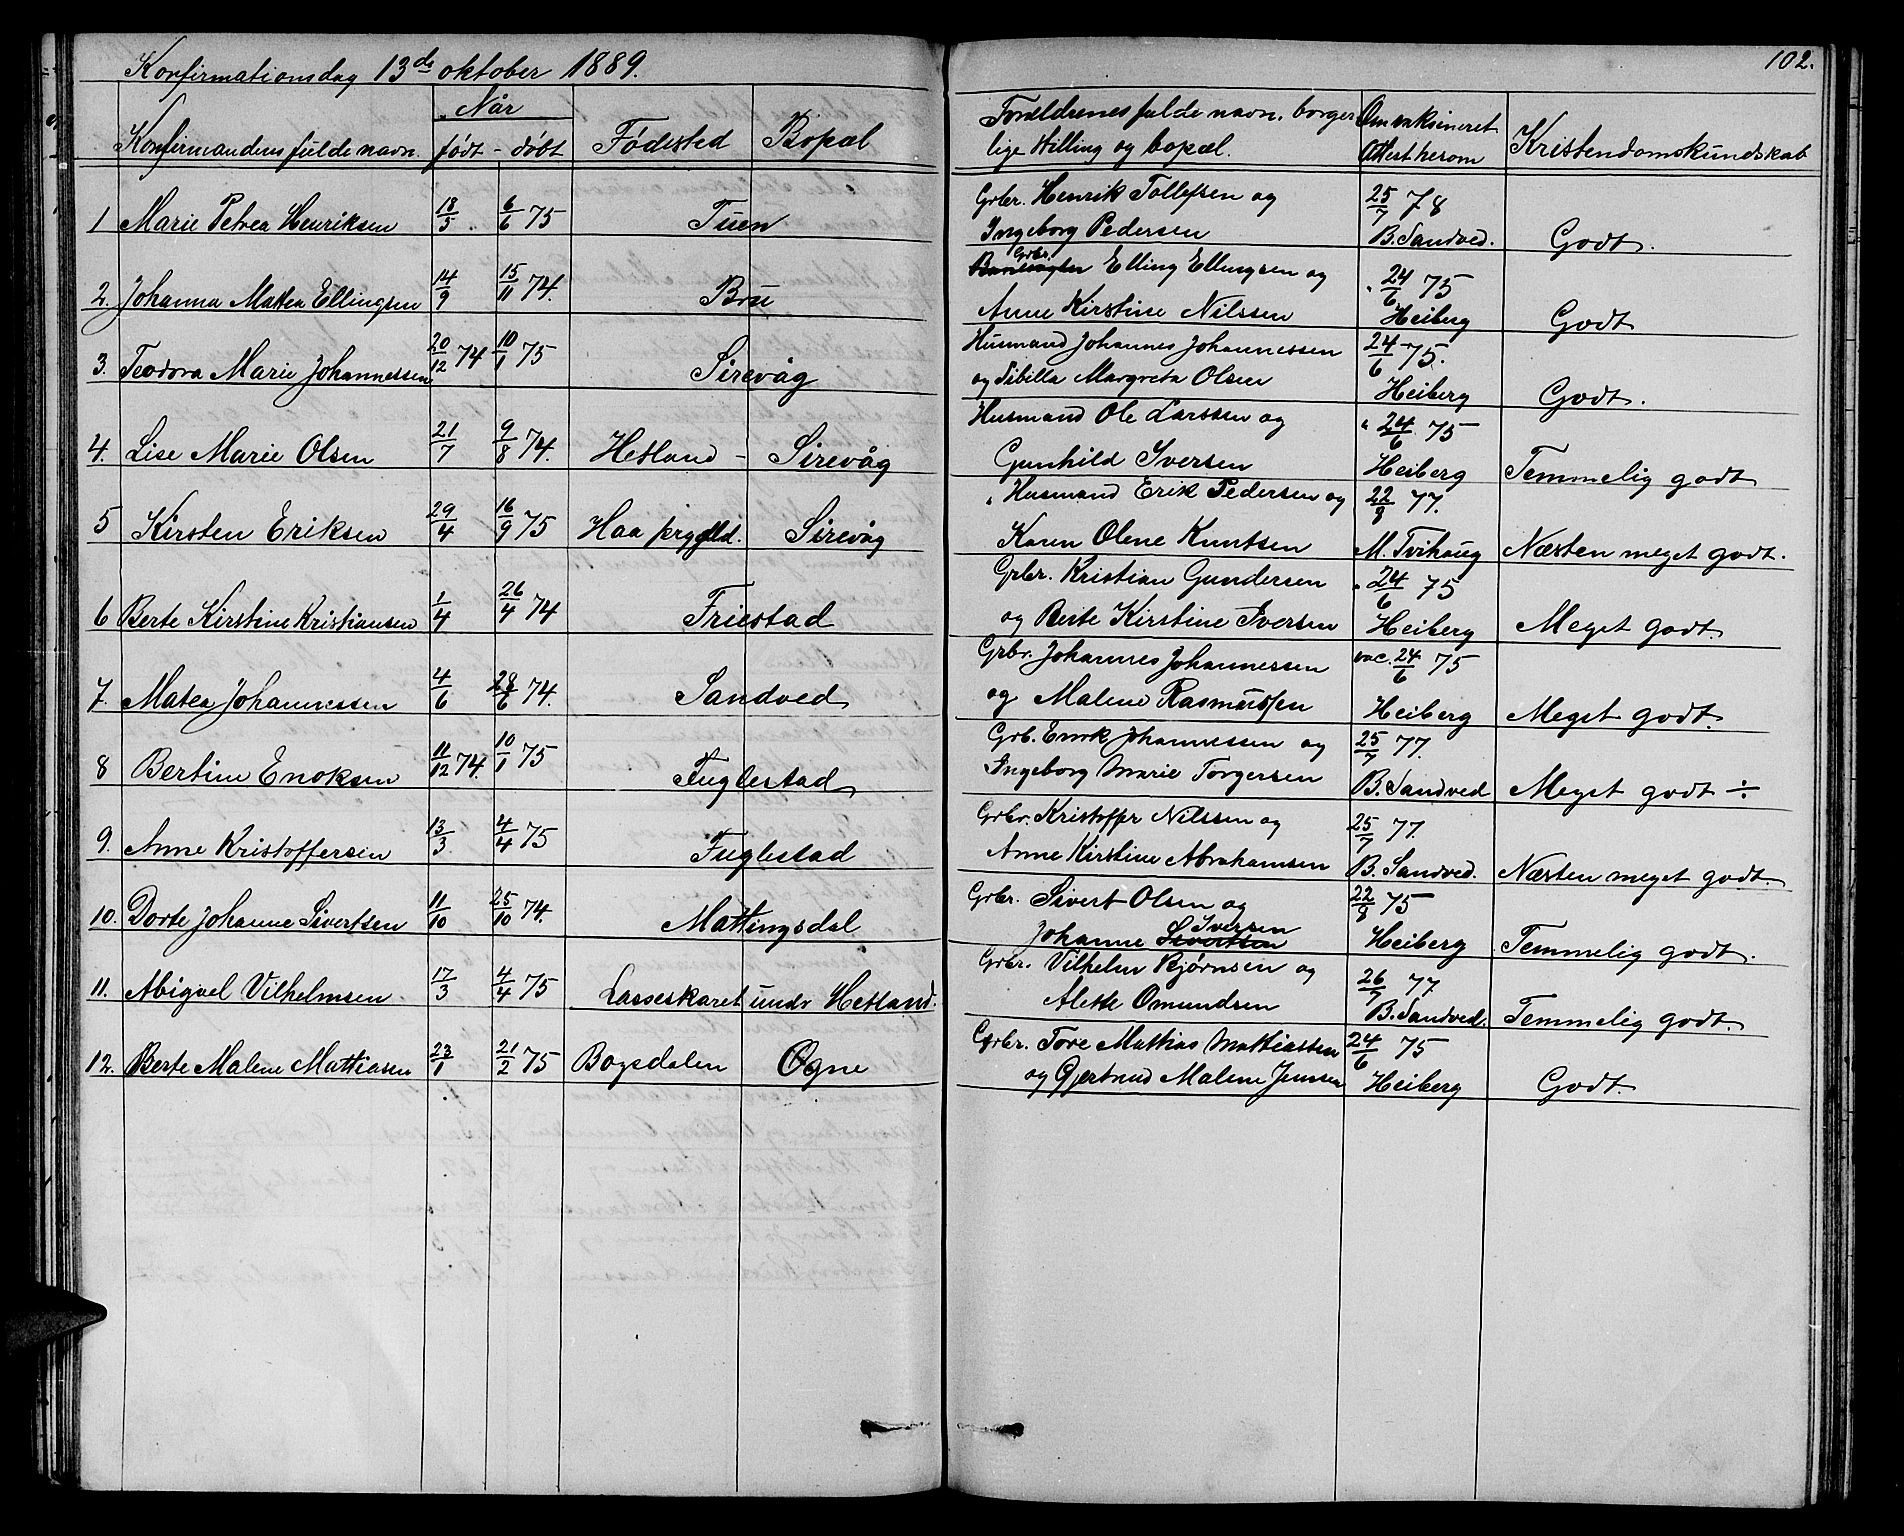 Konfirmationsdag 13de oktober 1889.
102.
Konfirmandens fulde navn. Når født - døbt Fødested Bopæl Forældrenes fulde navn, borger Om vaksineret Kristendomskundskab
lige stilling og bopæl. Attest herom
1 Marie Petrea Henriksen 18/5 6/6 75 Tuen Grbr. Henrik Tollefsen og 25/7 78
Ingeborg Pedersen B. Sandved. Godt.
2. Johanna Matea Ellingsen 14/9 15/11 74. Bru Grbr. Elling Ellingsen og 24/6 75
Anne Kirstine Nilssen Heiberg Godt
3. Teodora Marie Johannessen 20/12 74 10/1 75 Sirevåg Husmand Johannes Johannessen 24/6 75.
og Sibilla Margreta Olsen Heiberg Godt.
4. Lise Marie Olsen 21/7 9/8 74. Hetland - Sirevåg Husmand Ole Larssen og 24/6 75
Gunhild Iversen Heiberg Temmelig godt
5 Kirsten Eriksen 29/4 16/9 75 Haa prgjeld. Sirevåg Husmand Erik Pedersen og 22/8 77.
Karen Olene Knutsen M. Tvihaug Næsten meget godt.
6 Berte Kirstine Kristiansen 1/4 26/4 74 Friestad Grbr. Kristian Gundersen 24/6 75
og Berte Kirstine Iversen Heiberg Meget godt.
7. Matea Johannessen 4/6 28/6 74. Sandved Grbr. Johannes Johannessen vac. 24/6 75
og Malene Rasmussen Heiberg Meget godt.
8 Bertine Enoksen 11/12 74. 10/1 75 Fuglestad Grb. Enok Johannessen og 25/7 77.
Ingeborg Marie Torgersen B. Sandved Meget godt ÷
9. Anne Kristoffersen 13/3 4/4 75 Fuglestad Grbr. Kristoffer Nilssen og 25/7 77.
Anne Kirstine Abrahamsen B. Sandved. Næsten meget godt.
10. Dorte Johanne Sivertsen 11/10 25/10 74. Mattingsdal Grbr. Sivert Olsen og 22/8 75
Johanne Sivertsen Iversen Heiberg Temmelig godt.
11. Abigael Vilhelmsen 17/3 4/4 75 Lasseskaret undr Hetland. Grbr. Vilhelm Bjørnsen og 26/7 77
Alette Omundsen B. Sandved. Temmelig godt.
12. Berte Malene Mattiasen 23/1 21/2 75 Bogsdalen Ogne Grbr. Tore Mathias Mattiassen 24/6 75
og Gjertrud Malene Jensen Heiberg Godt.